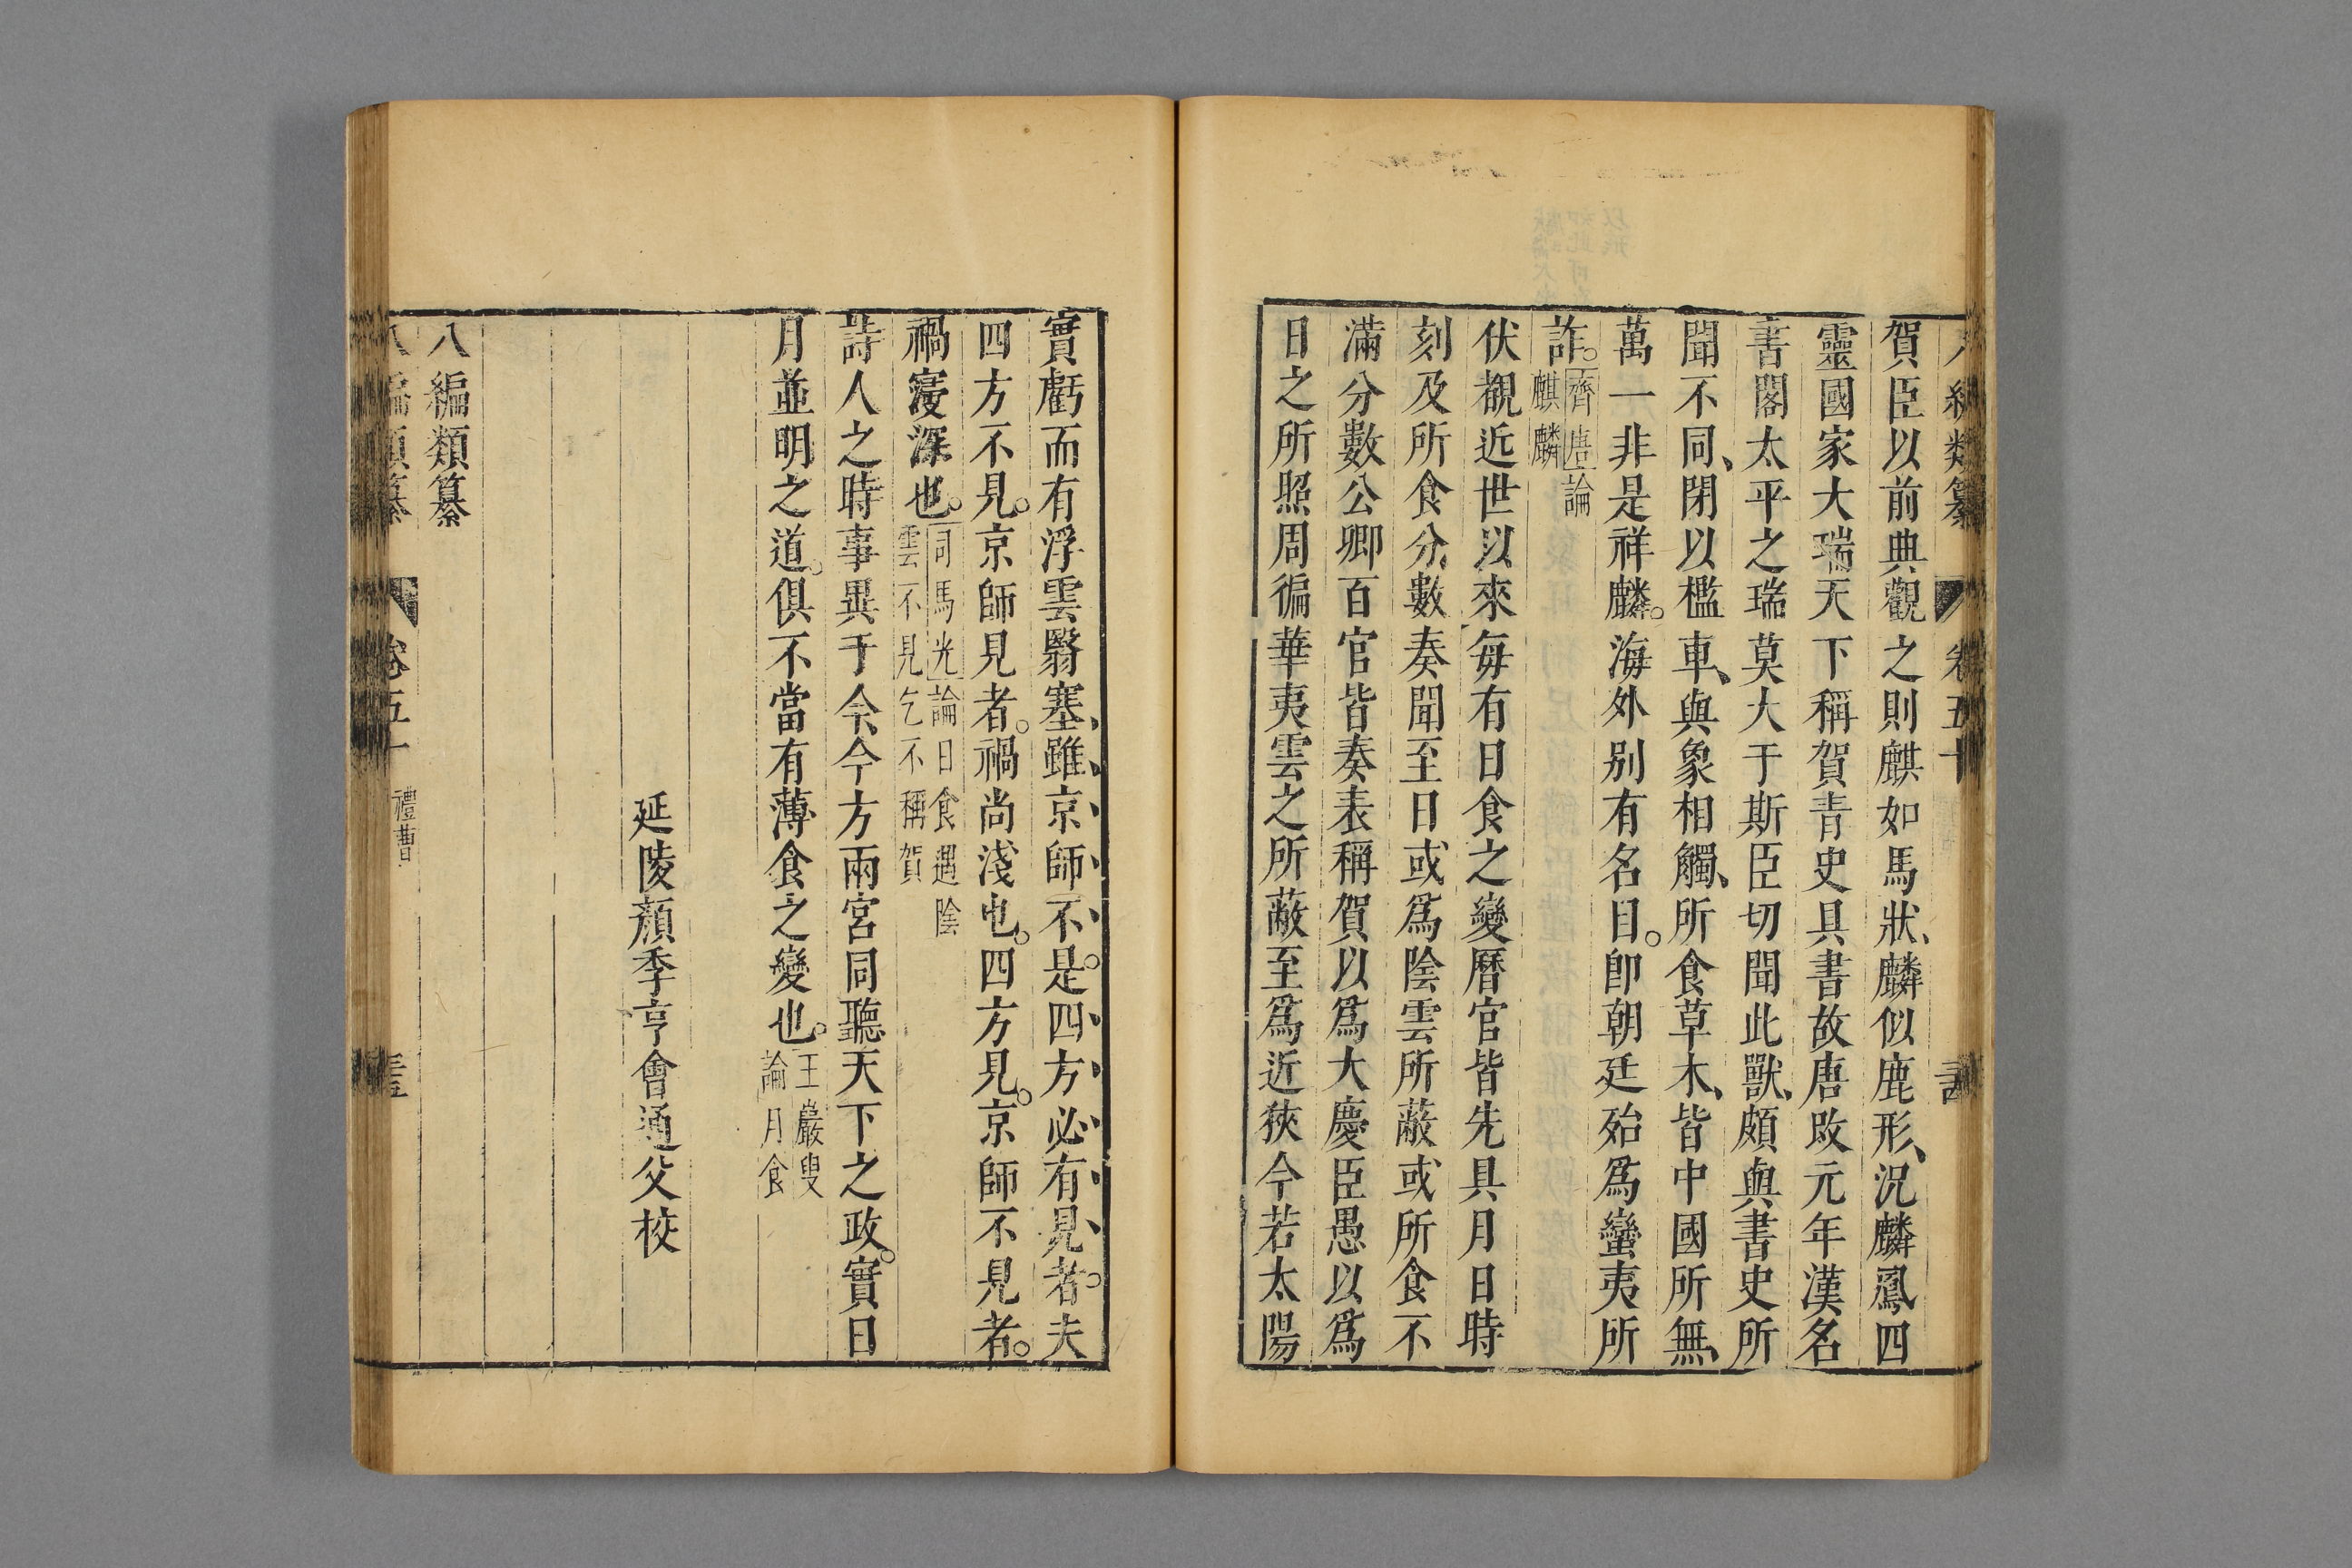 賀臣以前典觀之則麒如馬狀、麟似鹿形、況麟鳳四
靈國家大瑞天下稱賀青史具書故唐改元年漢名
書閣太平之瑞莫大于斯臣切聞此獸、頗與書史所
聞不同、閉以檻車、與象相觸、所食草木、皆中國所無、
萬一非是祥麟。海外別有名目。卽朝廷殆爲蠻夷所
詐。齊唐論
麒麟
伏覩近世以來每有日食之變曆官皆先具月日時
刻及所食分數奏聞至日或爲陰雲所蔽或所食不
滿分數公卿百官皆奏表稱賀以爲大慶臣愚以爲
日之所照周徧華夷雲之所蔽至爲近狹今若太陽
實虧而有浮雲翳塞、雖京師不是。四方必有見者。夫
四方不見。京師見者。禍尚淺也。四方見。京師不見者。
禍寖深也。司馬光論日食遇陰
雲不見乞不稱賀
詩人之時事異于今、今方兩宮同聽天下之政。實日
月並明之道。俱不當有薄食之變也。王巖叟
論月食
延陵顏季亨會通父校
八編類纂
八編類纂 卷五十 禮曹